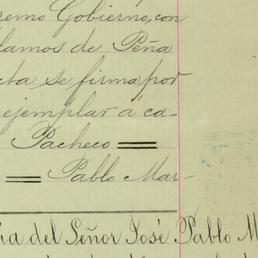 remo Gobierno, con
lamos de Peña
cta se firma por
ejemplar á ca-
Pacheco =
= Pablo Mar-
ia del Señor José Pablo M